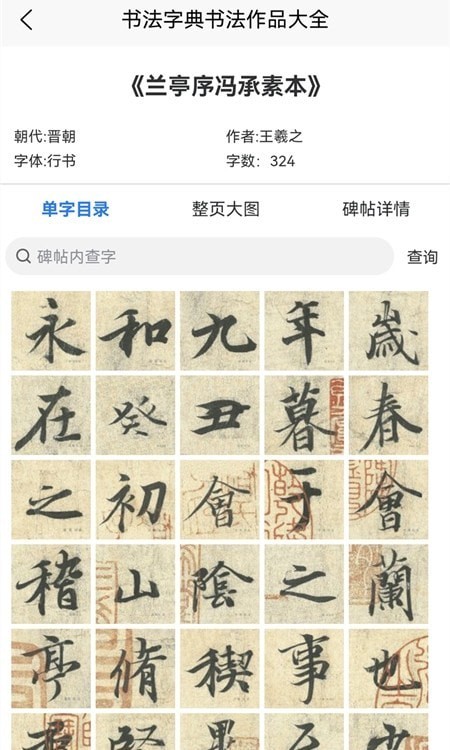 书法字典书法作品大全
《兰亭序冯承素本》
朝代:晋朝 作者:王羲之
字体:行书 字数：324
单字目录 整页大图 碑帖详情
碑帖内查字 查询
永 和 九 年 歲
在 癸 丑 暮 春
之 初 會 于 會
稽 山 陰 之 蘭
亭 脩 稧 事 也